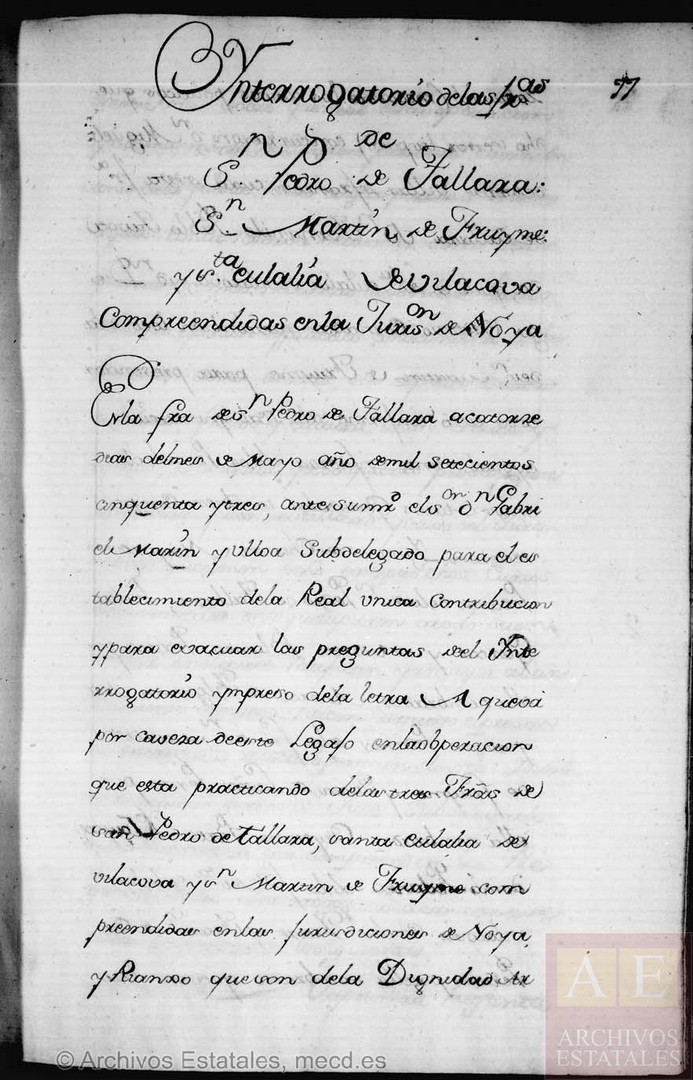 Ynterrogatorio delas fras 77
De
Sn. Pedro de Tallara:
Sn. Martin de Fruyme:
y sta. eulalia de vilacova
Compreendidas enla Jurison de Nóya
Enla fra de sn Pedro de Tallara acatorze
dias delmes de Mayo año demil setecientos
cinquenta ytres, ante sumrd elsor dn Gabri
el Marin y Ulloa Subdelegado para el es
tablecimiento dela Real Unica Contribucion
ypara evacuar las preguntas del Ynte
rrogatorio ympreso dela letra A queva
por caveza deeste Legajo enlaobperacion
que esta practicando delas tres Frais de
san Pedro de tallara, santa eulalia de
vilacova y sn Martin de Fruyme com
preendidas enlas Jurisdiciones de Nóya
y Rianxo queson dela Dignidad Ar
© Archivos Estatales, mecd.es
AE
ARCHIVOS
ESTATALES